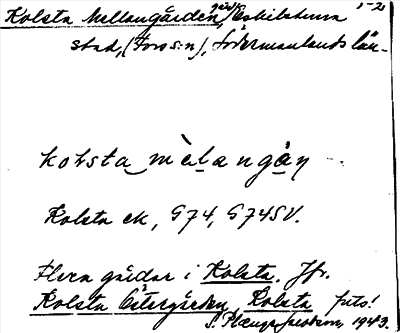 1-2
Kolsta Mellangården, gård, Eskilstuna
stad, (Fors sn), Södermanlands län.
kolsta mèlangån
Kolsta ek, G74, G74SV.
Flera gårdar i Kolsta. Jfr.
Kolsta Östergården, Kolsta
1943.